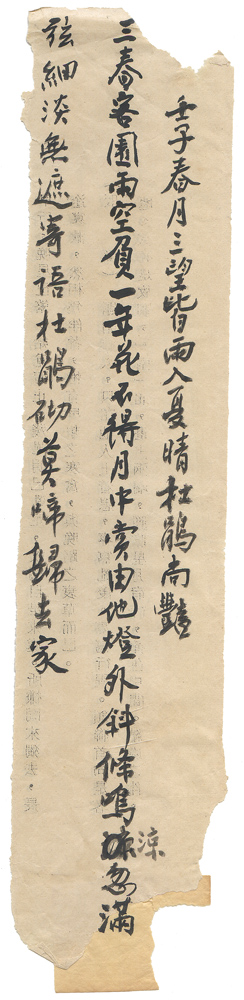 壬子春月三望皆雨入夏晴杜鵑尚豔
三春客園雨空負一年花不得月中賞由他燈外斜條鳴涼忽滿
弦細淡無遮寄語杜鵑砌莫啼歸去家